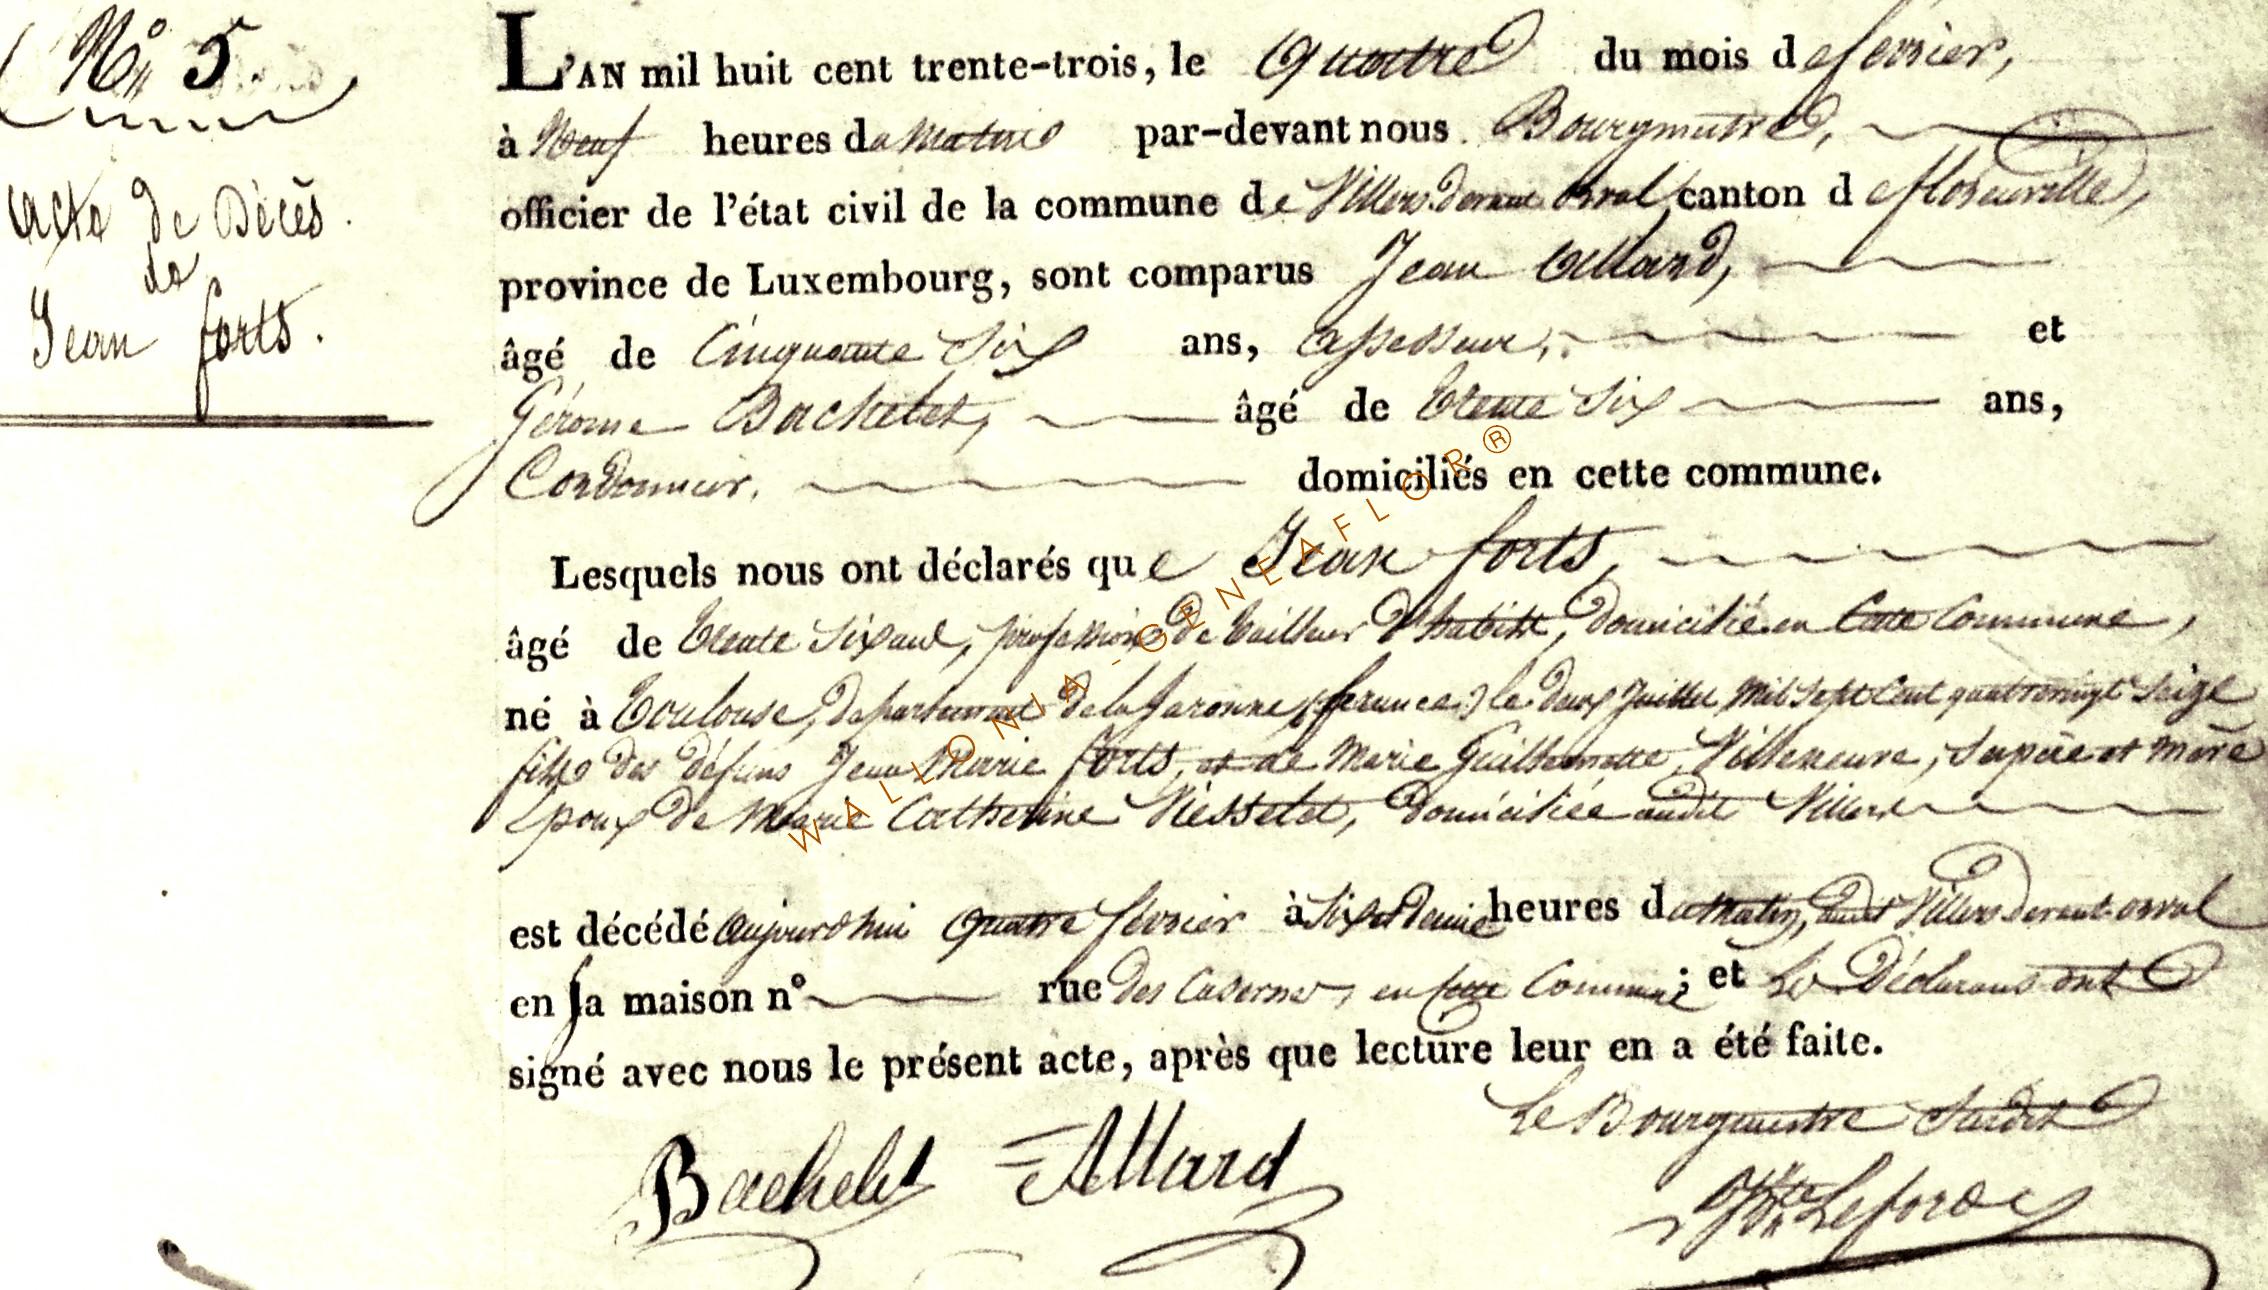 N° 5.
Acte de Décès
de
Jean forts.
L'AN mil huit cent trente-trois, le Quatre du mois de fevrier,
à Neuf heures du Matin par-devant nous Bourgmestre,
officier de l'état civil de la commune de Villers devant orval canton de florenville,
province de Luxembourg, sont comparus Jean Allard,
âgé de Cinquante Six ans, assesseur, et
Gérome Bachelet, âgé de trente Six ans,
Cordonnier, domiciliés en cette commune.
Lesquels nous ont déclarés que Jean forts,
âgé de trente Six ans, profession de tailleur d'habits, domicilié en Cette Commune,
né à Toulouse, departement de la Garonne, (france) le deux Juillet Mil Sept Cent quatrevingt Seize
fils des défuns Jean Marie forts, et de Marie Guilhemette Villeneuve, Ses père et mère
Epoux de Marie Catherine Niesselet, domiciliée audit Villers
est décédé aujourd'hui quatre février à Six et demie heures du matin, audit Villers devant orval
en sa maison n° rue des Casernes, en cette Commune; et Les Déclarans ont
signé avec nous le présent acte, après que lecture leur en a été faite.
Le Bourgmestre Susdit
Bachelet Allard
WALLONIA-GENEAFLOR®